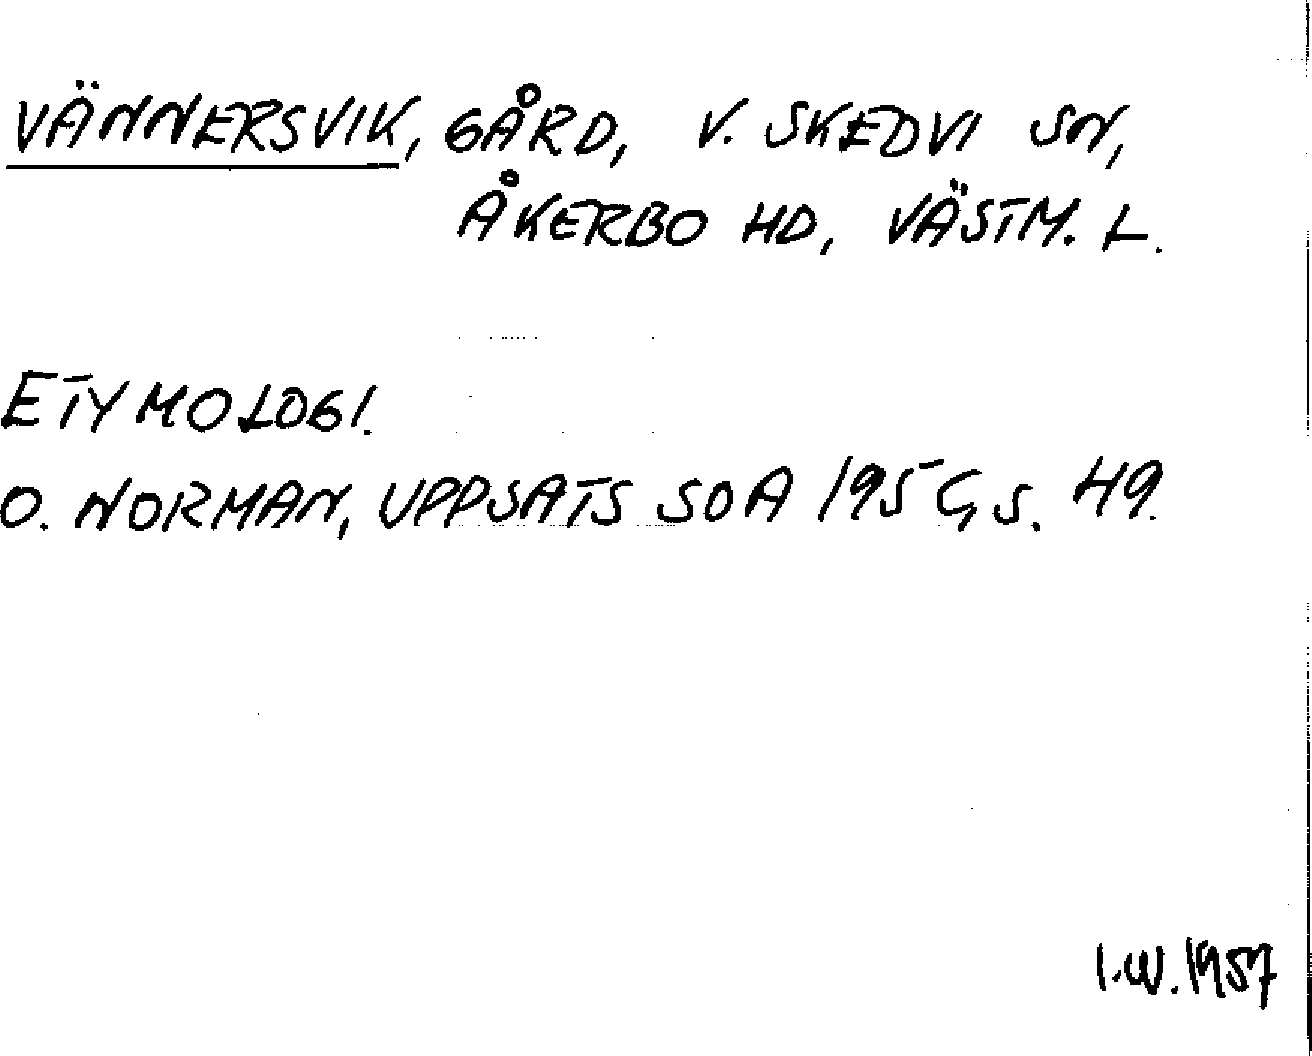 VÄNNERSVIK, GÅRD, V. SKEDVI SN,
ÅKERBO HD, VÄSTM. L.
ETYMOLOGI.
O. NORMAN, UPPSATS SOA S. 49.
I.W. 1957